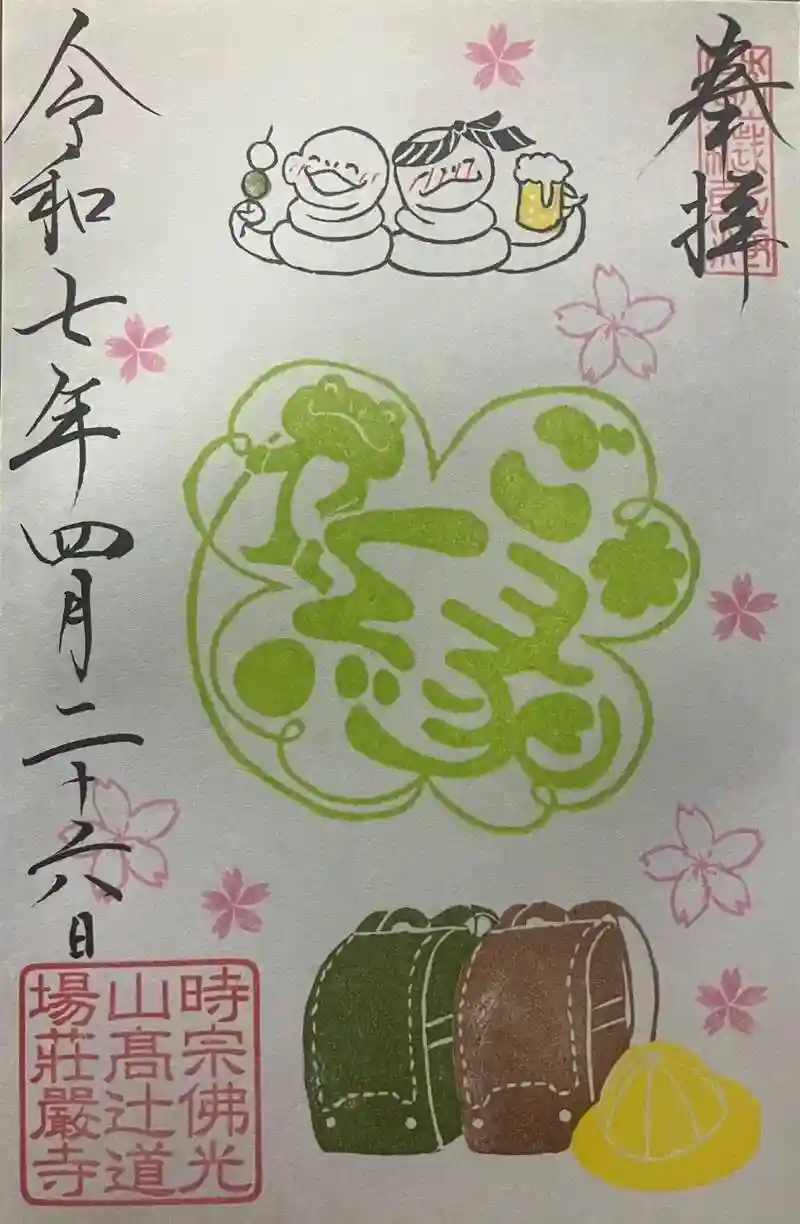 奉拝
ごえん
令和七年四月二十六日
時宗佛光
山髙辻道
場莊嚴寺